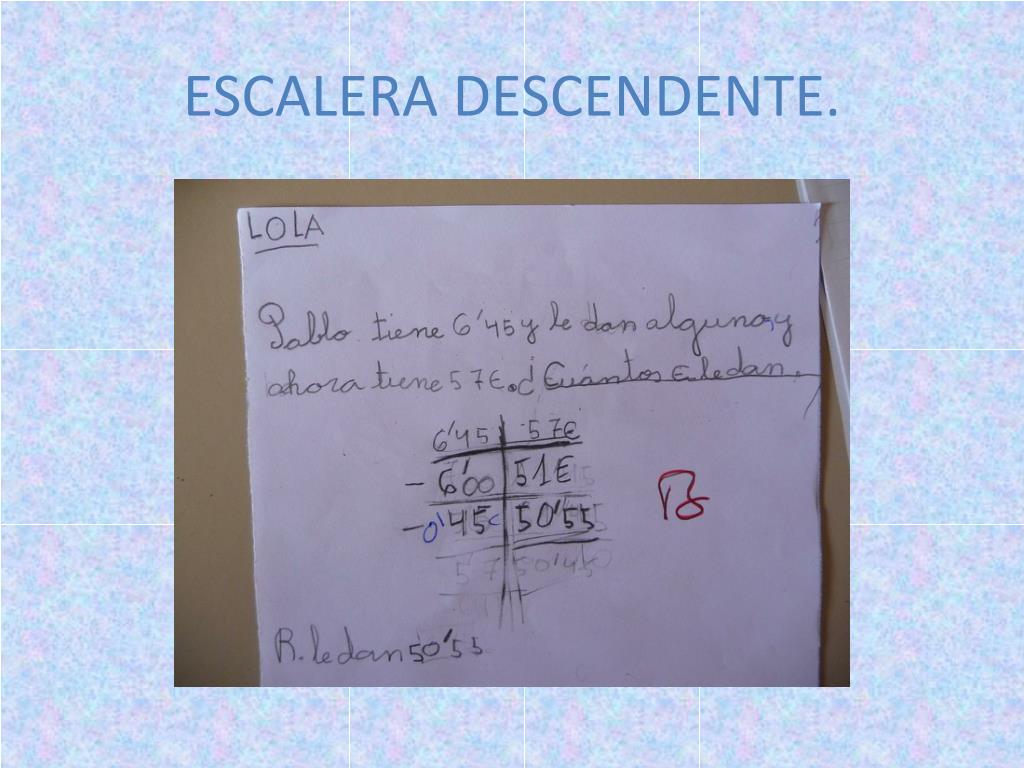 ESCALERA DESCENDENTE.
LOLA
Pablo tiene 6'45 y le dan algunos, y
ahora tiene 57€. ¿Cuántos € le dan.
6'45 57€
- 6'00 51€
- 0'45c 50'55
57 50'45
R. le dan 50'55